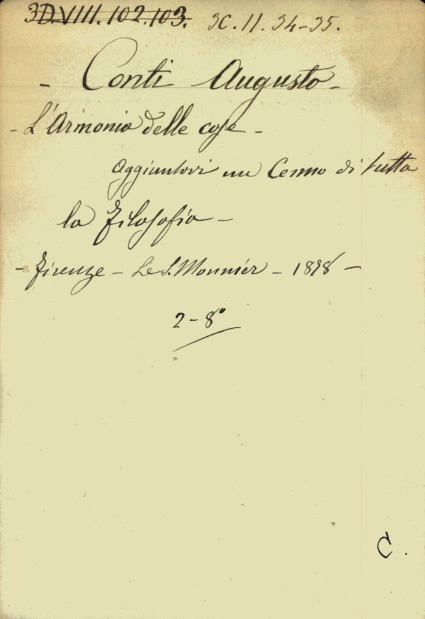 3D.VIII.102.103. 3C.II.34-35.
- Conti Augusto -
- L'Armonia delle cose -
Aggiuntovi un Cenno di tutta
la Filosofia -
- Firenze - Le S. Monnier - 1878 -
2 - 8°
C.